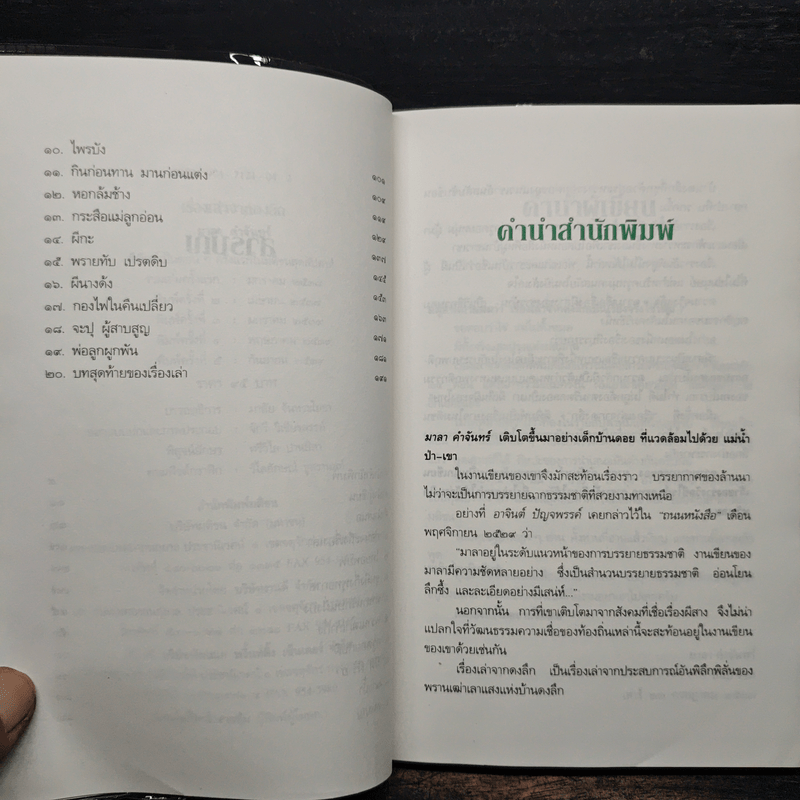 ๑๐. ไพรบัง ๑๐๑
๑๑. กินก่อนทาน มานก่อนแต่ง ๑๐๘
๑๒. หอกล้มช้าง ๑๑๘
๑๓. กระสือแม่ลูกอ่อน ๑๒๘
๑๔. ผีกะ ๑๓๗
๑๕. พรายทับ เปรตดิบ ๑๔๕
๑๖. ผีนางด้ง ๑๕๓
๑๗. กองไฟในคืนเปลี่ยว ๑๖๓
๑๘. จะปุ ผู้สาบสูญ ๑๗๑
๑๙. พ่อลูกผูกพัน ๑๘๑
๒๐. บทสุดท้ายของเรื่องเล่า ๑๙๑
คำนำสำนักพิมพ์
มาลา คำจันทร์ เติบโตขึ้นมาอย่างเด็กบ้านดอย ที่แวดล้อมไปด้วย แม่น้ำ
ป่า–เขา
ในงานเขียนของเขาจึงมักสะท้อนเรื่องราว บรรยากาศของล้านนา
ไม่ว่าจะเป็นการบรรยายฉากธรรมชาติที่สวยงามทางเหนือ
อย่างที่ อาจินต์ ปัญจพรรค์ เคยกล่าวไว้ใน "ถนนหนังสือ" เดือน
พฤศจิกายน ๒๕๒๙ ว่า
"มาลาอยู่ในระดับแนวหน้าของการบรรยายธรรมชาติ งานเขียนของ
มาลามีความชัดหลายอย่าง ซึ่งเป็นสำนวนบรรยายธรรมชาติ อ่อนโยน
ลึกซึ้ง และละเอียดอย่างมีเสน่ห์..."
นอกจากนั้น การที่เขาเติบโตมาจากสังคมที่เชื่อเรื่องผีสาง จึงไม่น่า
แปลกใจที่วัฒนธรรมความเชื่อของท้องถิ่นเหล่านี้จะสะท้อนอยู่ในงานเขียน
ของเขาด้วยเช่นกัน
เรื่องเล่าจากดงลึก เป็นเรื่องเล่าจากประสบการณ์อันพิลึกพิลั่นของ
พรานเฒ่าเลาแสงแห่งบ้านดงลึก